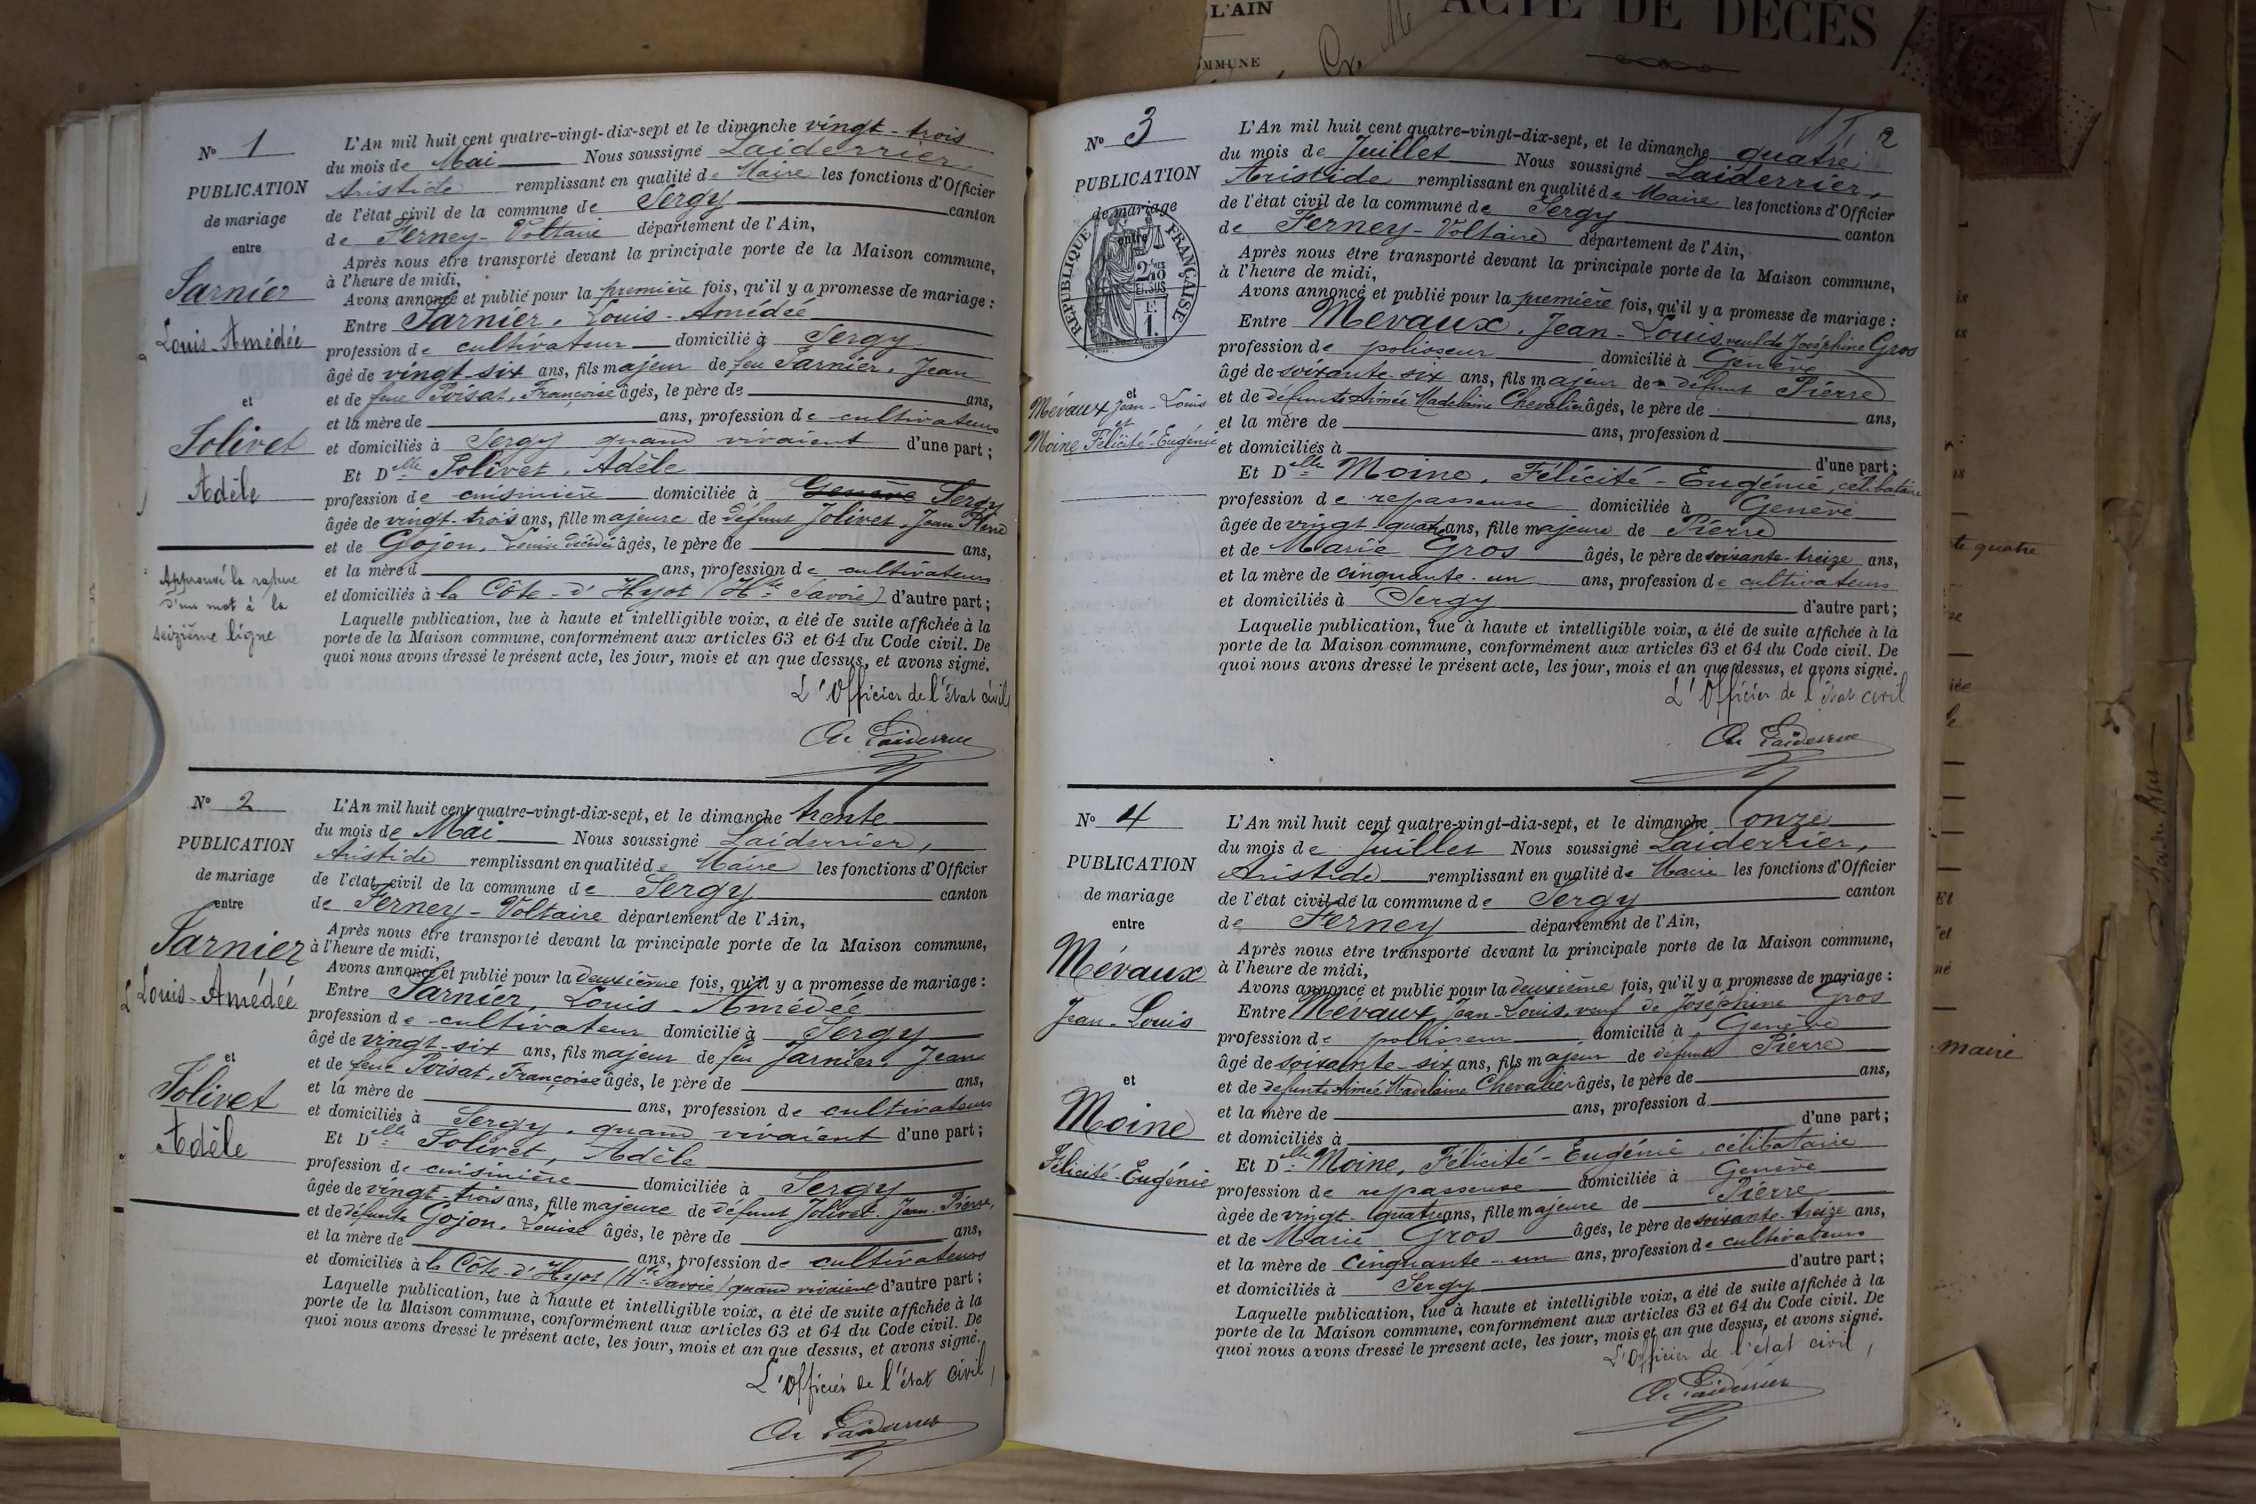 L'AIN
ACTE DE DÉCÈS
MMUNE
Nº 1
PUBLICATION
de mariage
entre
Jarnier
Louis-Amédée
et
Jolivet
Adèle
Approuvé la rature
d'un mot à la
seizième ligne
L'An mil huit cent quatre-vingt-dix-sept et le dimanche vingt-trois
du mois de Mai Nous soussigné Laiderrier
Aristide remplissant en qualité de Maire les fonctions d'Officier
de l'état civil de la commune de Sergy canton
de Ferney-Voltaire département de l'Ain,
Après nous être transporté devant la principale porte de la Maison commune,
à l'heure de midi,
Avons annoncé et publié pour la première fois, qu'il y a promesse de mariage :
Entre Jarnier, Louis-Amédée
profession de cultivateur domicilié à Sergy
âgé de vingt-six ans, fils majeur de feu Jarnier, Jean
et de feue Poisat, Françoise âgés, le père de ans,
et la mère de ans, profession de cultivateurs
et domiciliés à Sergy quand vivaient d'une part ;
Et Delle Jolivet, Adèle
profession de cuisinière domiciliée à Genève Sergy
âgée de vingt-trois ans, fille majeure de défunt Jolivet, Jean Pierre
et de Gojon, Louise décédée âgés, le père de ans,
et la mère d ans, profession de cultivateurs
et domiciliés à la Côte-d'Hyot (Hte Savoie) d'autre part ;
Laquelle publication, lue à haute et intelligible voix, a été de suite affichée à la
porte de la Maison commune, conformément aux articles 63 et 64 du Code civil. De
quoi nous avons dressé le présent acte, les jour, mois et an que dessus, et avons signé.
L'Officier de l'état civil
Ar Laiderrier
Nº 2
PUBLICATION
de mariage
entre
Jarnier
Louis-Amédée
et
Jolivet
Adèle
L'An mil huit cent quatre-vingt-dix-sept, et le dimanche trente
du mois de Mai Nous soussigné Laiderrier,
Aristide remplissant en qualité de Maire les fonctions d'Officier
de l'état civil de la commune de Sergy canton
de Ferney-Voltaire département de l'Ain,
Après nous être transporté devant la principale porte de la Maison commune,
à l'heure de midi,
Avons annoncé et publié pour la deuxième fois, qu'il y a promesse de mariage :
Entre Jarnier, Louis-Amédée
profession de cultivateur domicilié à Sergy
âgé de vingt-six ans, fils majeur de feu Jarnier, Jean
et de feue Poisat, Françoise âgés, le père de ans,
et la mère de ans, profession de cultivateurs
et domiciliés à Sergy, quand vivaient d'une part ;
Et Delle Jolivet, Adèle
profession de cuisinière domiciliée à Sergy
âgée de vingt-trois ans, fille majeure de défunt Jolivet, Jean-Pierre,
et de défunte Gojon, Louise âgés, le père de ans,
et la mère de ans, profession de cultivateurs
et domiciliés à la Côte-d'Hyot (Hte Savoie) quand vivaient d'autre part ;
Laquelle publication, lue à haute et intelligible voix, a été de suite affichée à la
porte de la Maison commune, conformément aux articles 63 et 64 du Code civil. De
quoi nous avons dressé le présent acte, les jour, mois et an que dessus, et avons signé.
L'Officier de l'état civil,
Ar Laiderrier
2
Nº 3
PUBLICATION
de mariage
entre
RÉPUBLIQUE FRANÇAISE
2/10 EN SUS
1.
et
Mévaux Jean-Louis
et
Moine Félicité-Eugénie
L'An mil huit cent quatre-vingt-dix-sept, et le dimanche quatre
du mois de Juillet Nous soussigné Laiderrier,
Aristide remplissant en qualité de Maire les fonctions d'Officier
de l'état civil de la commune de Sergy canton
de Ferney-Voltaire département de l'Ain,
Après nous être transporté devant la principale porte de la Maison commune,
à l'heure de midi,
Avons annoncé et publié pour la première fois, qu'il y a promesse de mariage :
Entre Mévaux, Jean-Louis, veuf de Joséphine Gros
profession de polisseur domicilié à Genève
âgé de soixante-six ans, fils majeur de défunt Pierre
et de défunte Aimée Madelaine Chevalier âgés, le père de ans,
et la mère de ans, profession d
et domiciliés à d'une part ;
Et Delle Moine, Félicité-Eugénie, célibataire
profession de repasseuse domiciliée à Genève
âgée de vingt-quatre ans, fille majeure de Pierre
et de Marie Gros âgés, le père de soixante-treize ans,
et la mère de cinquante-un ans, profession de cultivateurs
et domiciliés à Sergy d'autre part ;
Laquelle publication, lue à haute et intelligible voix, a été de suite affichée à la
porte de la Maison commune, conformément aux articles 63 et 64 du Code civil. De
quoi nous avons dressé le présent acte, les jour, mois et an que dessus, et avons signé.
L'Officier de l'état civil
Ar Laiderrier
Nº 4
PUBLICATION
de mariage
entre
Mévaux
Jean-Louis
et
Moine
Félicité-Eugénie
L'An mil huit cent quatre-vingt-dix-sept, et le dimanche onze
du mois de Juillet Nous soussigné Laiderrier,
Aristide remplissant en qualité de Maire les fonctions d'Officier
de l'état civil de la commune de Sergy canton
de Ferney département de l'Ain,
Après nous être transporté devant la principale porte de la Maison commune,
à l'heure de midi,
Avons annoncé et publié pour la deuxième fois, qu'il y a promesse de mariage :
Entre Mévaux, Jean-Louis, veuf de Joséphine Gros
profession de polisseur domicilié à Genève
âgé de soixante-six ans, fils majeur de défunt Pierre
et de défunte Aimée Madelaine Chevalier âgés, le père de ans,
et la mère de ans, profession d
et domiciliés à d'une part ;
Et Delle Moine, Félicité-Eugénie, célibataire
profession de repasseuse domiciliée à Genève
âgée de vingt-quatre ans, fille majeure de Pierre
et de Marie Gros âgés, le père de soixante-treize ans,
et la mère de cinquante-un ans, profession de cultivateurs
et domiciliés à Sergy d'autre part ;
Laquelle publication, lue à haute et intelligible voix, a été de suite affichée à la
porte de la Maison commune, conformément aux articles 63 et 64 du Code civil. De
quoi nous avons dressé le présent acte, les jour, mois et an que dessus, et avons signé.
L'Officier de l'état civil,
Ar Laiderrier
quatre
maire